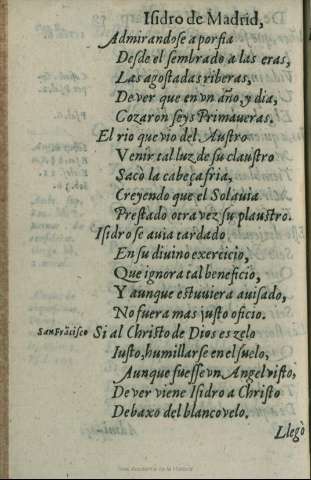 Isidro de Madrid,
Admirandose a porfia
Desde el sembrado a las eras,
Las agostadas riberas,
De ver que en vn año, y dia,
Gozaron seys Primaueras.
El rio que vio del Austro
Venir tal luz de su claustro
Sacò la cabeça fria,
Creyendo que el Sol auia
Prestado otra vez su plaustro.
Isidro se auia tardado
En su diuino exercicio,
Que ignora tal beneficio,
Y aunque estuuiera auisado,
No fuera mas justo oficio.
San Frãcisco Si al Christo de Dios es zelo
Iusto, humillarse en el suelo,
Aunque fuesse vn Angel visto,
De ver viene Isidro a Christo
Debaxo del blanco velo.
Llegò
Real Academia de la Historia